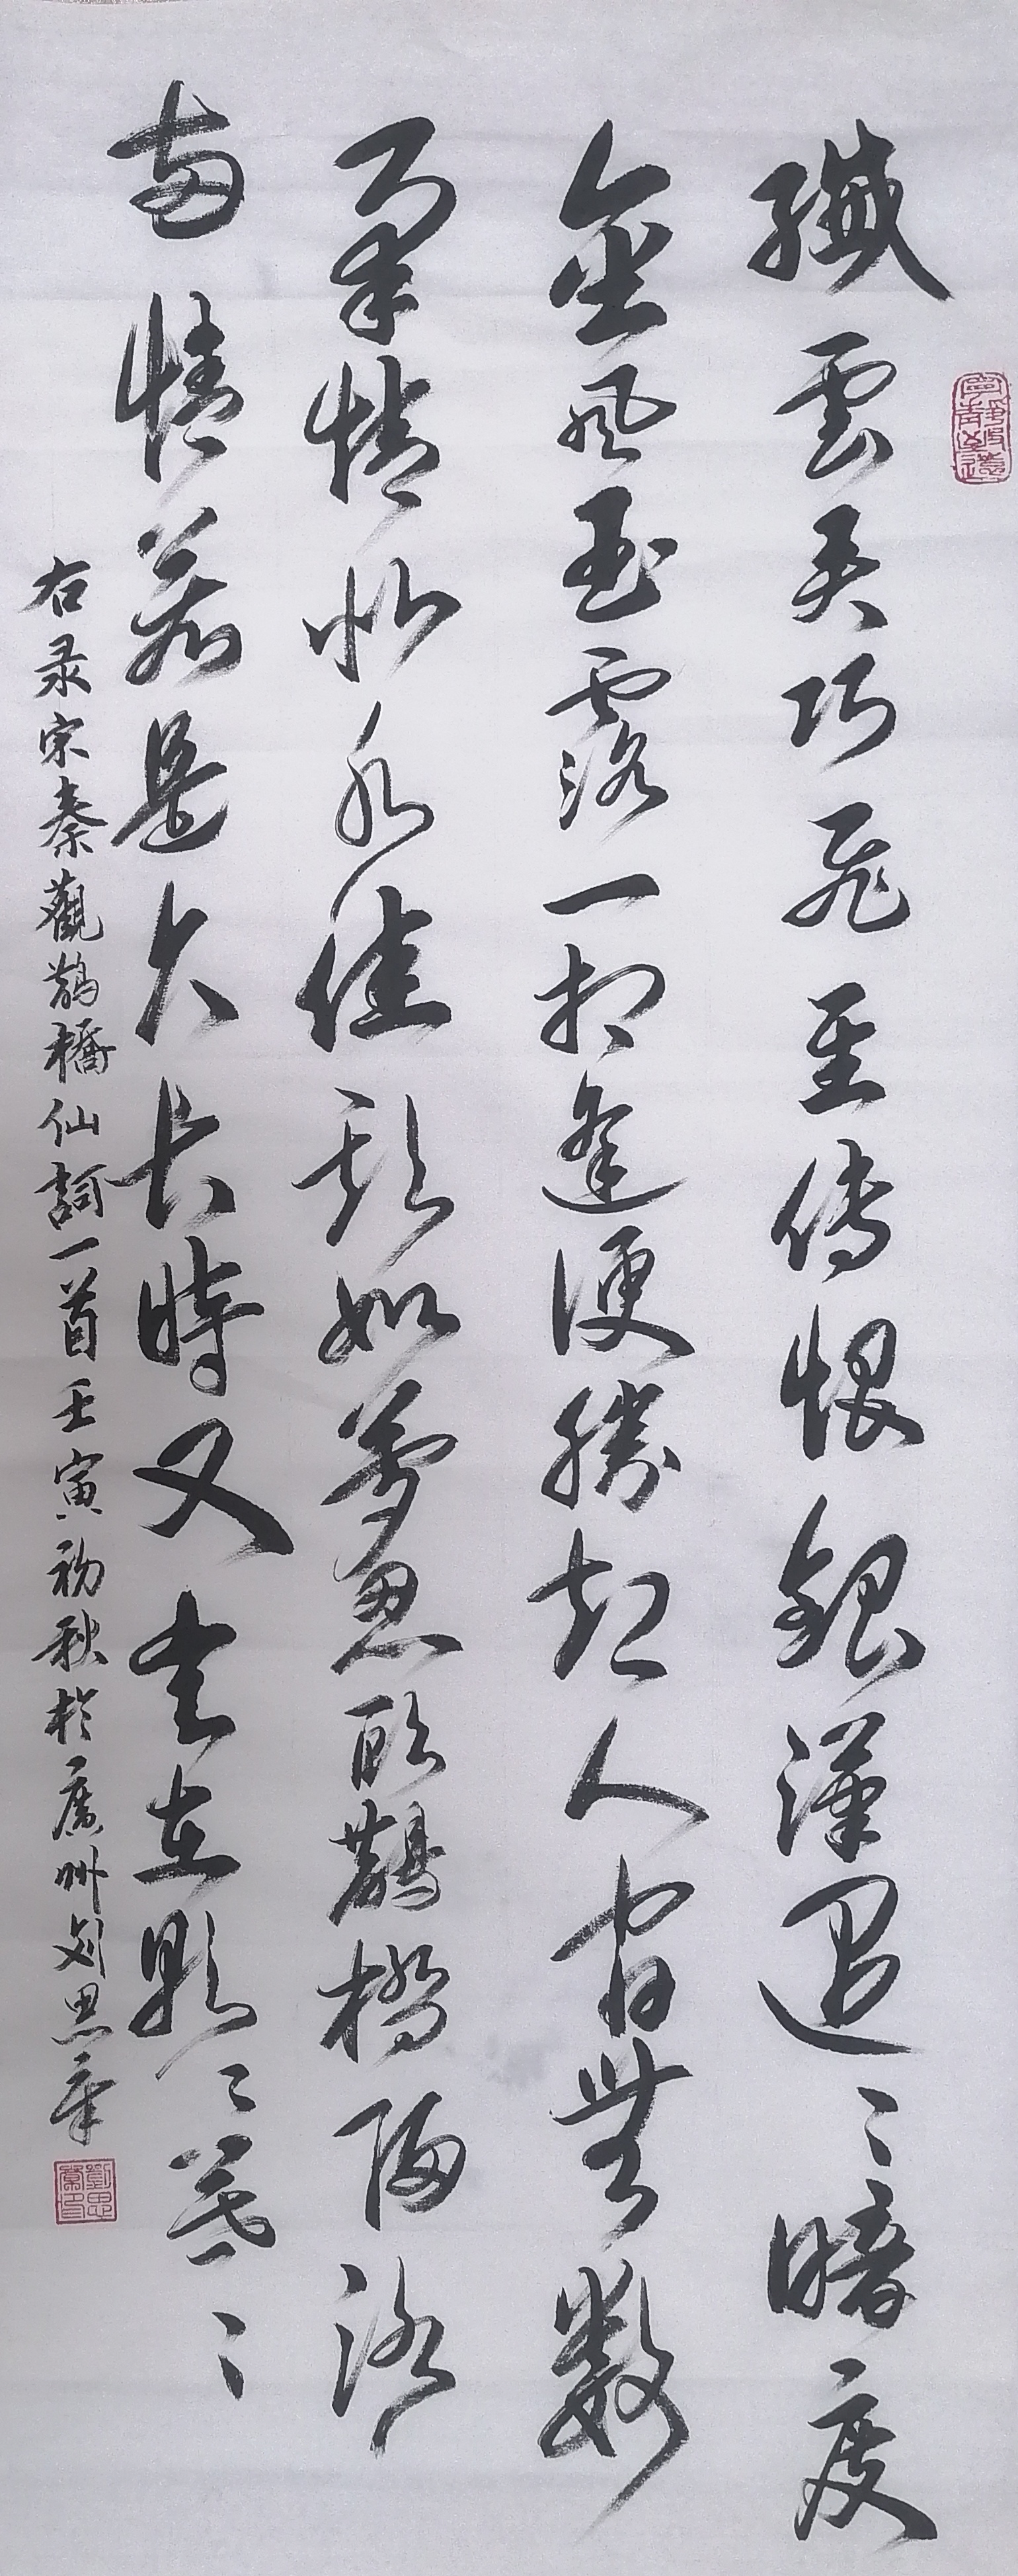 寧靜致遠
纖雲弄巧飛星传恨銀漢迢〻暗度
金風玉露一相逢便勝却人间無数
柔情似水佳期如夢忍顧鵲橋歸路
两情若是久長時又豈在朝〻暮〻
右录宋秦觀鵲橋仙詞一首壬寅初秋於廣州刘思